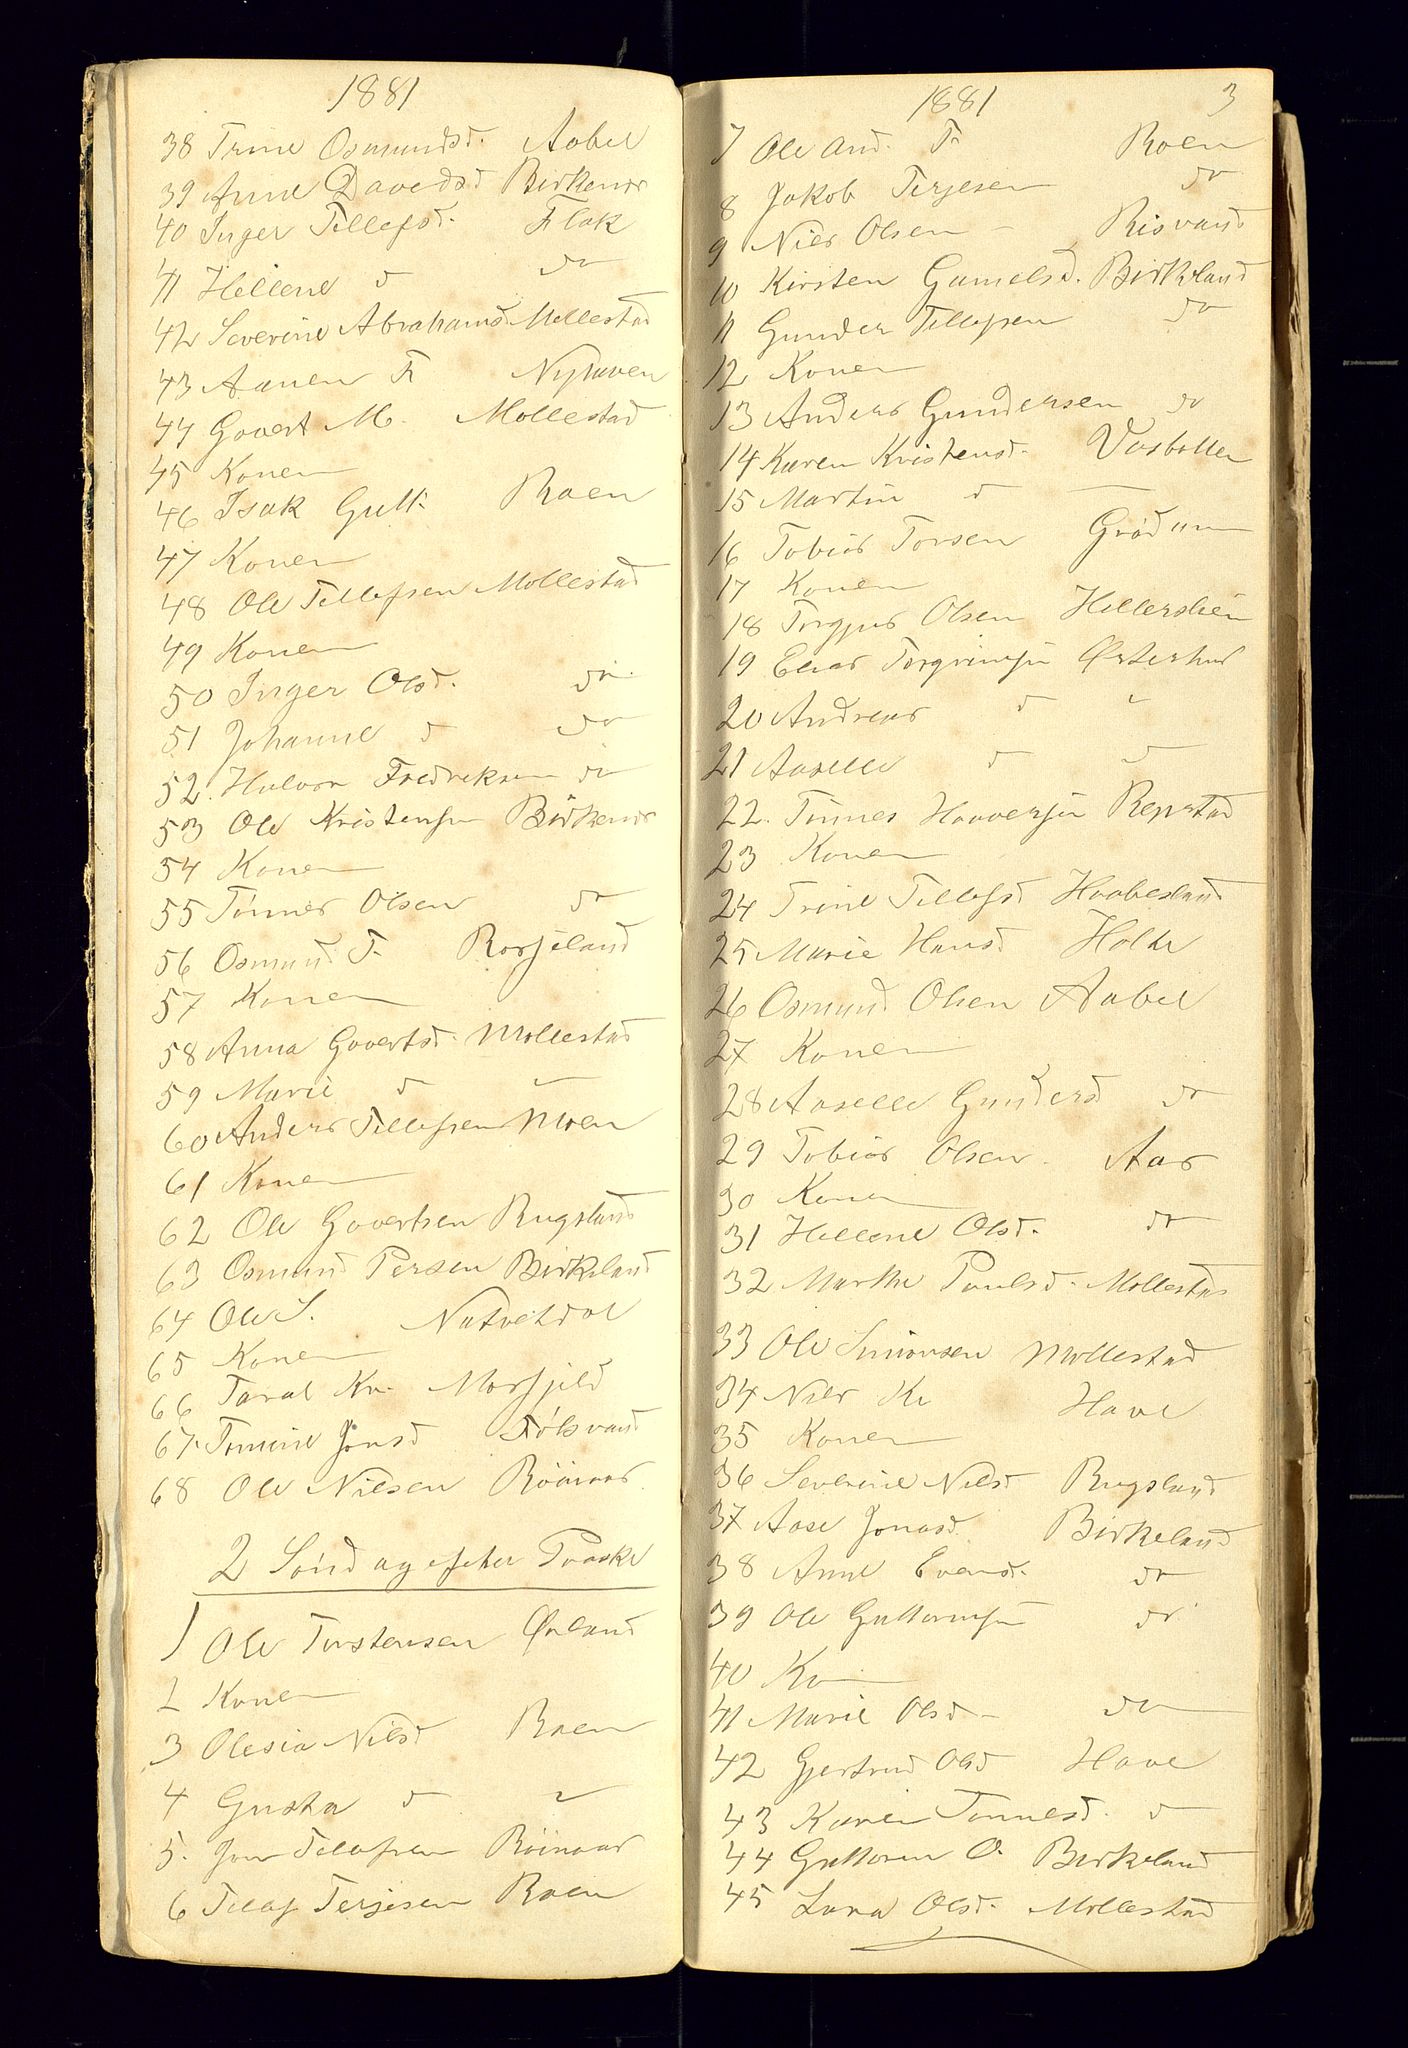 1881
38 Trine Osmundsd. Aabel
39 Anne Davedsd Birkenes
40 Inger Tellefsd. Flak
41 Hellene d do
42 Severine Abrahamsd. Mollestad
43 Aanen F
44 Govert M. Mollestad
45 Konen
46 Isak Gutt. Roen
47 Konen
48 Ole Tellefsen Mollestad
49 Konen
50 Inger Olsd. do
51 Johanne d do
52. Halvor Fredreksen do
53 Ole Kristensen Birkenes
54 Konen
55 Tønnes Olsen do
56 Osmund T.
57 Konen
58 Anna Govertsd. Mollestad
59 Marie d
60 Anders Tellefsen Moen
61 Konen
62 Ole Govertsen Rugsland
63 Osmund Persen Birkeland
64 Ole S. Natvetdal
65 Konen
66 Taral Kr.
67. Tomine Jonsd
68 Ole Nilsen
2 Søndag efter Paaske
1 Ole Torstensen
2 Konen
3 Olesia Nilsd Roen
4 Gusta d
5. Jon Tellefsen
6 Tellef Terjesen Roen
1881 3
7 Ole And. T. Roen
8 Jakob Terjesen do
9 Niels Olsen – Risvand
10 Kirsten Gamelsd. Birkeland
11 Gunder Tellefsen do
12 Konen
13 Anders Gundersen do
14 Karen Kristensd. Vasbotten
15 Martin d
16 Tobias Torsen Grødum
17 Konen
18 Torgjus Olsen
19 Elias Torgrimsen Østerhus
20 Andreas d
21 Aaselle d
22. Tønnes Haaversen Repstad
23 Konen
24 Trine Tellefsd Haabesland
25 Marie Hansd Holte
26 Osmund Olsen Aabel
27 Konen
28 Aaselle Gundersd do
29 Tobias Olsen Aas
30 Konen
31 Hellene Olsd. do
32 Marthe Paulsd. Mollestad
33 Ole Simonsen Mollestad
34 Niels Kr Have
35 Konen
36 Severine Nilsd Rugsland
37 Aase Jonasd. Birkeland
38 Anne Evensd. do
39 Ole Guttormsen do
40 Kon
41 Marie Olsd – do
42 Gjertrud Olsd Have
43 Karen Tønnesd. d
44 Guttorm O. Birkeland
45 Lava Olsd. Mollestad